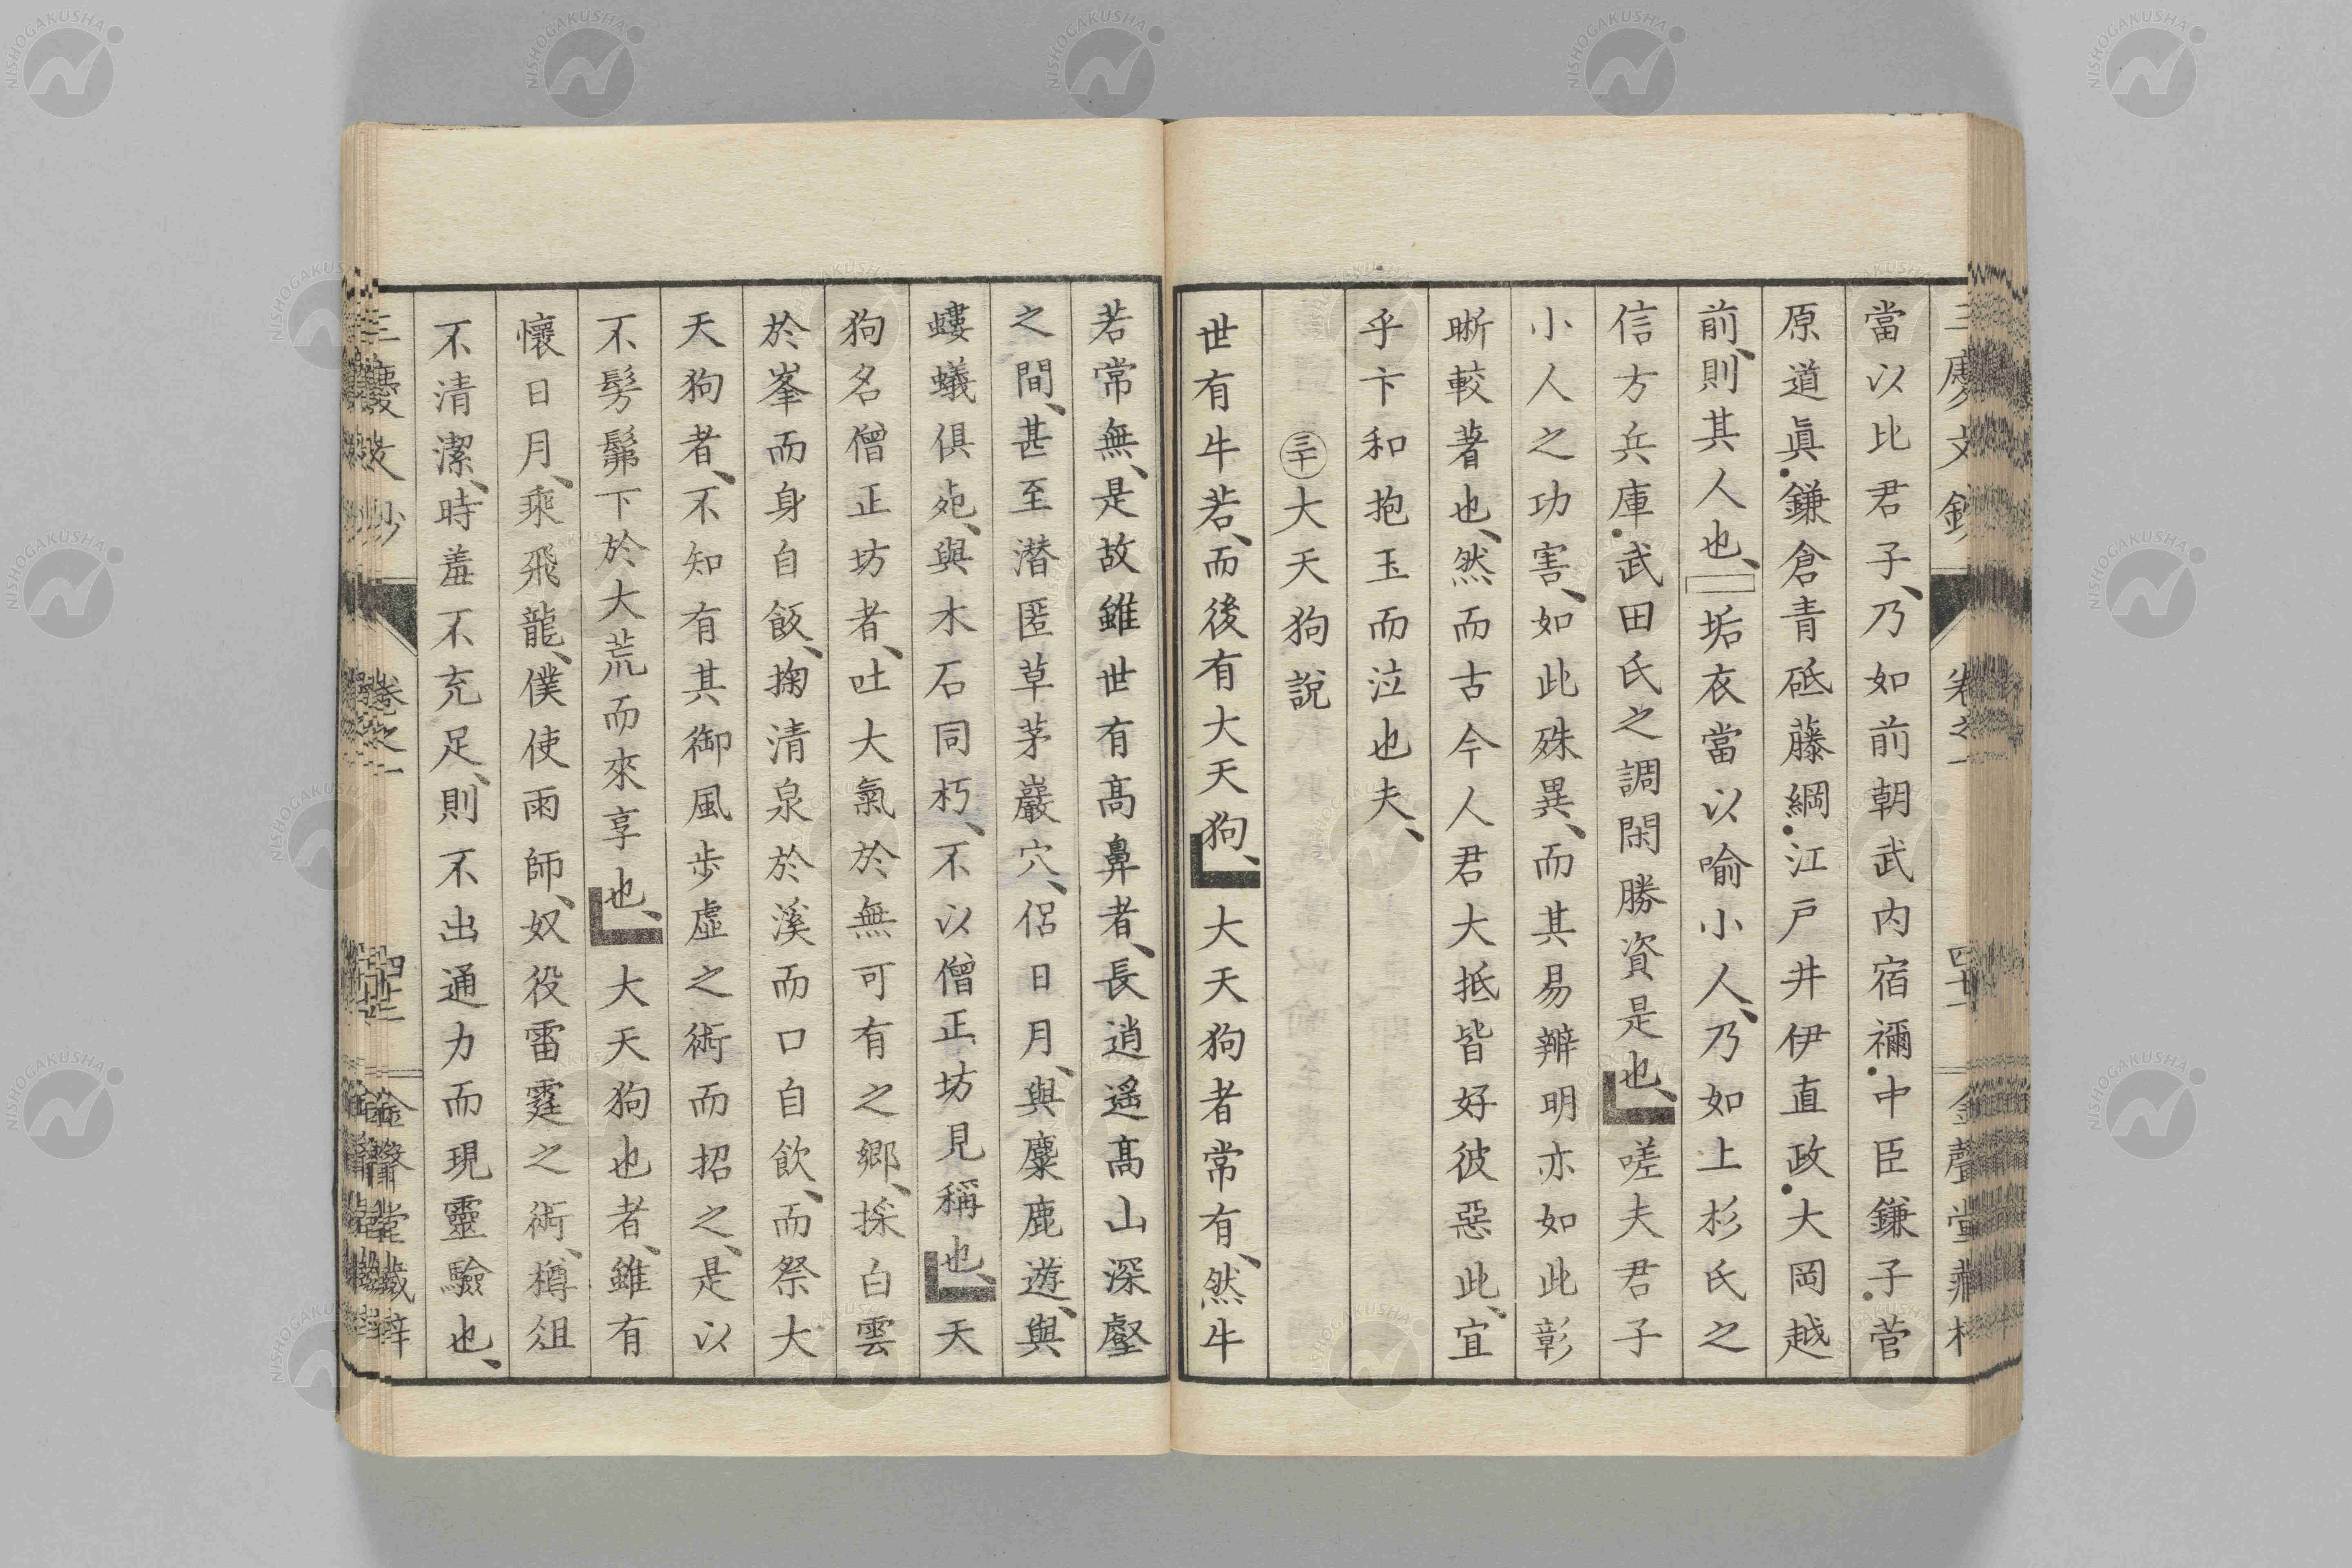 當以比君子、乃如前朝武内宿禰・中臣鎌子・菅
原道眞・鎌倉青砥藤綱・江戸井伊直政・大岡越
前、則其人也、垢衣當以喩小人、乃如上杉氏之
信方兵庫・武田氏之調閑勝資是也、嗟夫君子
小人之功害、如此殊異、而其易辨明亦如此彰
晰較著也、然而古今人君大抵皆好彼惡此、宜
乎卞和抱玉而泣也夫、
㊂大天狗說
世有牛若、而後有大天狗、大天狗者常有、然牛
若常無、是故雖世有高鼻者、長逍遙高山深壑
之間、甚至潜匿草茅巖穴、侶日月、與麋鹿遊、與
螻蟻俱死、與木石同朽、不以僧正坊見稱也、天
狗名僧正坊者、吐大氣於無可有之鄉、採白雲
於峯而身自飯、掬清泉於溪而口自飲、而祭大
天狗者、不知有其御風歩虛之術而招之、是以
不髣髴下於大荒而來享也、大天狗也者、雖有
懷日月、乘飛龍、僕使雨師、奴役雷霆之術、樽俎
不清潔、時羞不充足、則不出通力而現靈驗也、
NISHOGAKUSHA